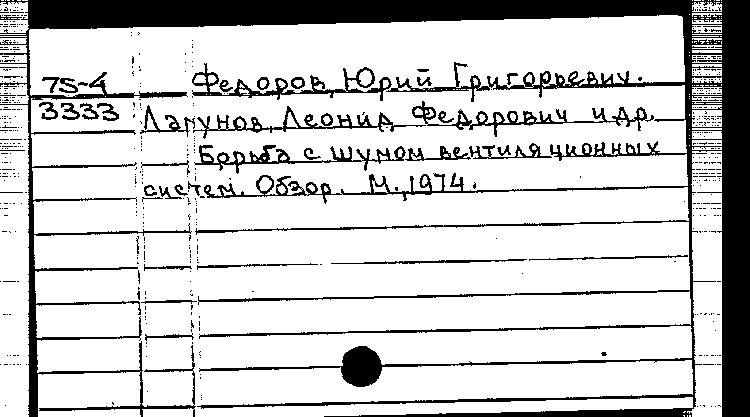 75-4 Федоров, Юрий Григорьевич.
3333 Лагунов, Леонид Федорович и др.
Борьба с шумом вентиляционных
систем. Обзор. М., 1974.